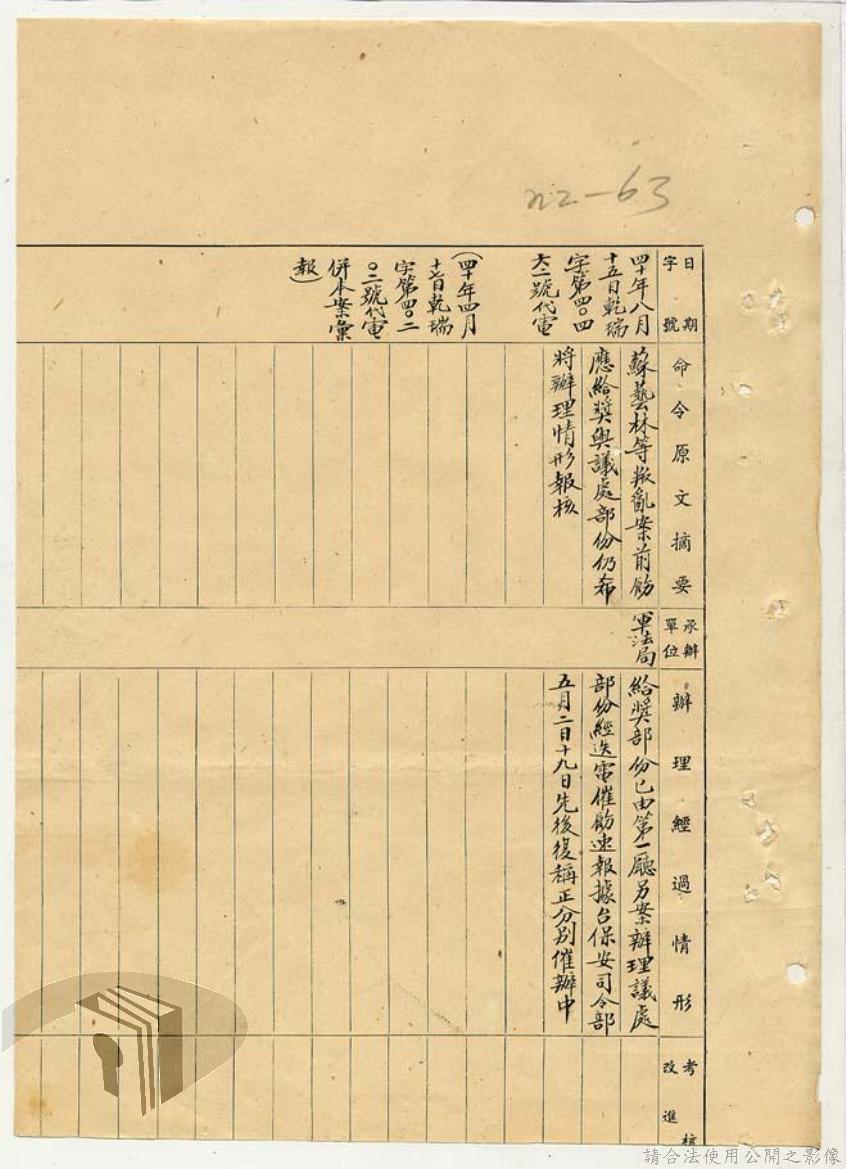 n2-63
日期
字號
四十年八月
十五日乾瑞
字第四〇四
六二號代電
(四十年四月
十七日乾瑞
字第四〇二
〇二號代電
併本案彙
報)
命令原文摘要
蘇藝林等叛亂案前飭
應給獎與議處部份仍希
將辦理情形報核
承辦
單位
軍法局
辦理經過情形
給獎部份已由第一廳另案辦理議處
部份經迭電催飭速報據台保安司令部
五月二日十九日先後復稱正分別催辦中
考核
改進
請合法使用公開之影像